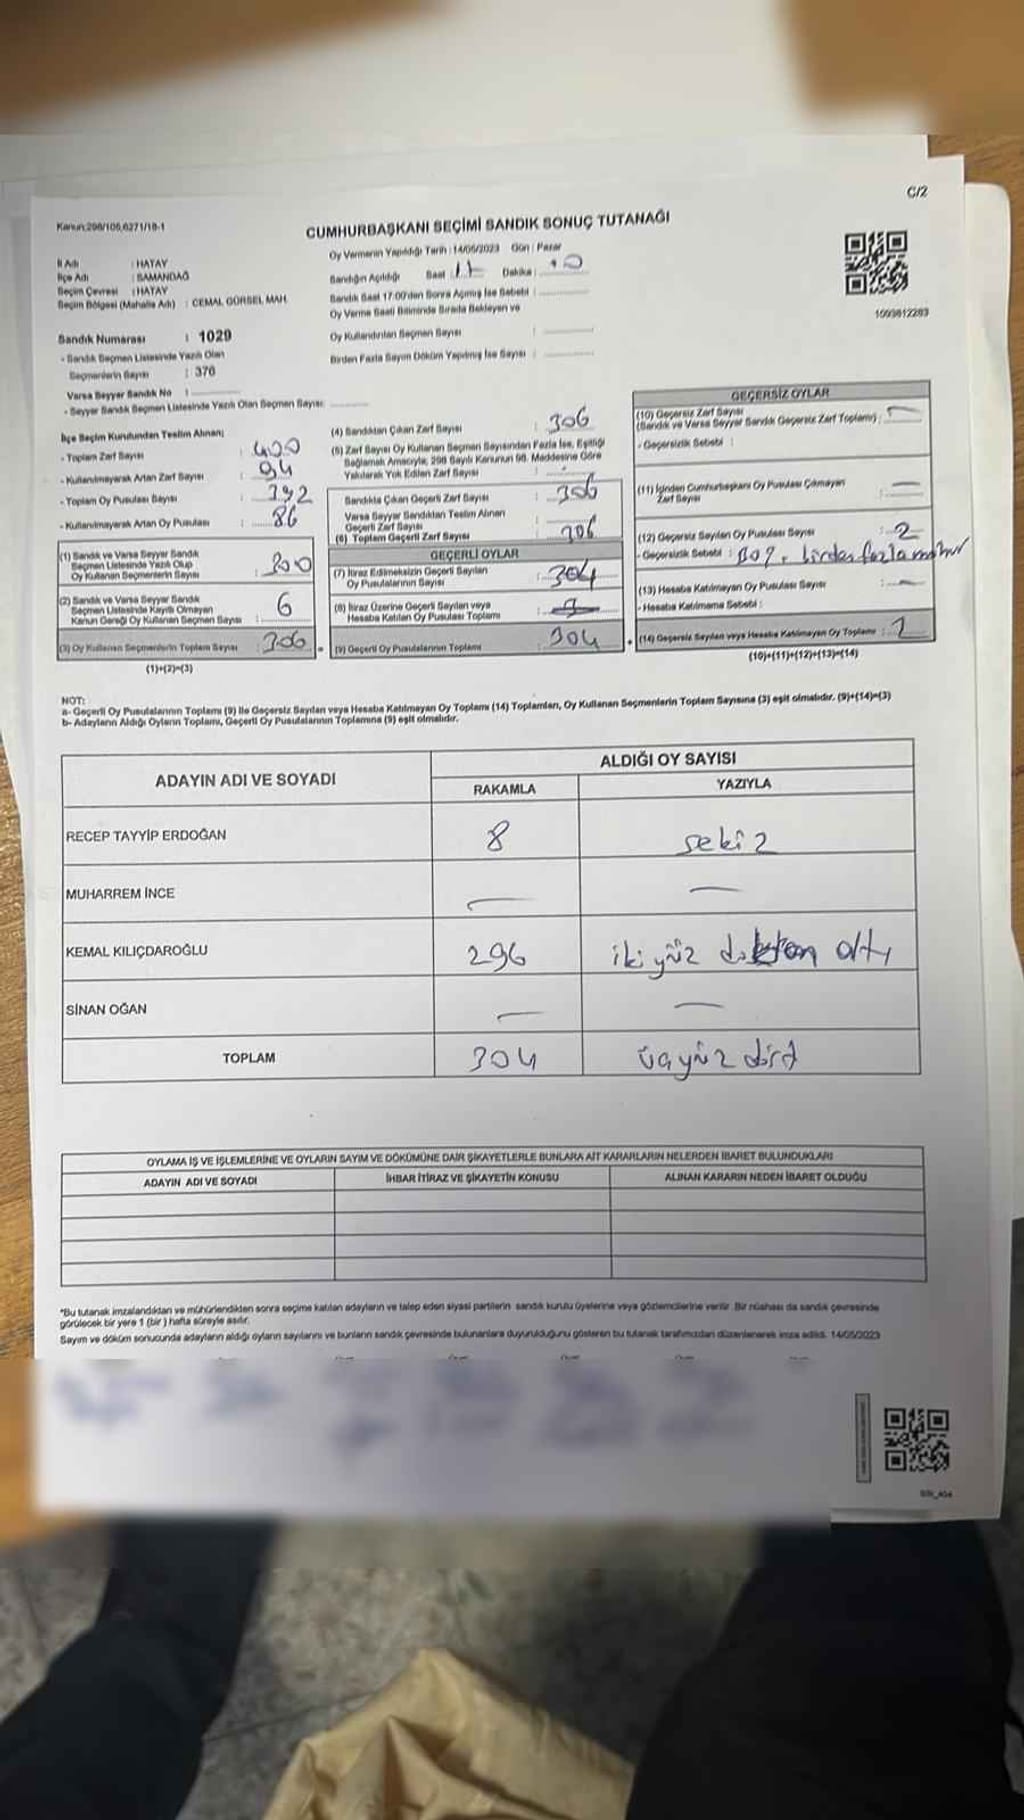 C/2
Kanun:298/105,6271/18-1
CUMHURBAŞKANI SEÇİMİ SANDIK SONUÇ TUTANAĞI
İl Adı : HATAY
İlçe Adı : SAMANDAĞ
Seçim Çevresi : HATAY
Seçim Bölgesi (Mahalle Adı) : CEMAL GÜRSEL MAH.
Oy Vermenin Yapıldığı Tarih : 14/05/2023 Gün : Pazar
Sandığın Açıldığı Saat : 17 Dakika :
Sandık Saat 17:00'den Sonra Açılmış İse Sebebi :
Oy Verme Saati Bitiminde Sırada Bekleyen ve
Oy Kullandırılan Seçmen Sayısı :
Birden Fazla Sayım Döküm Yapılmış İse Sayısı :
1009812283
Sandık Numarası : 1029
- Sandık Seçmen Listesinde Yazılı Olan
Seçmenlerin Sayısı : 376
Varsa Seyyar Sandık No :
- Seyyar Sandık Seçmen Listesinde Yazılı Olan Seçmen Sayısı:
İlçe Seçim Kurulundan Teslim Alınan;
- Toplam Zarf Sayısı : 400
- Kullanılmayarak Artan Zarf Sayısı : 94
- Toplam Oy Pusulası Sayısı : 392
- Kullanılmayarak Artan Oy Pusulası : 86
(1) Sandık ve Varsa Seyyar Sandık
Seçmen Listesinde Yazılı Olup
Oy Kullanan Seçmenlerin Sayısı : 300
(2) Sandık ve Varsa Seyyar Sandık
Seçmen Listesinde Kayıtlı Olmayan
Kanun Gereği Oy Kullanan Seçmen Sayısı : 6
(3) Oy Kullanan Seçmenlerin Toplam Sayısı : 306
(1)+(2)=(3)
(4) Sandıktan Çıkan Zarf Sayısı : 306
(5) Zarf Sayısı Oy Kullanan Seçmen Sayısından Fazla İse, Eşitliği
Sağlamak Amacıyla, 298 Sayılı Kanunun 98. Maddesine Göre
Yakılarak Yok Edilen Zarf Sayısı :
Sandıkta Çıkan Geçerli Zarf Sayısı : 306
Varsa Seyyar Sandıktan Teslim Alınan
Geçerli Zarf Sayısı :
(6) Toplam Geçerli Zarf Sayısı : 306
GEÇERLİ OYLAR
(7) İtiraz Edilmeksizin Geçerli Sayılan
Oy Pusulalarının Sayısı : 304
(8) İtiraz Üzerine Geçerli Sayılan veya
Hesaba Katılan Oy Pusulası Toplamı :
(9) Geçerli Oy Pusulalarının Toplamı 304
GEÇERSİZ OYLAR
(10) Geçersiz Zarf Sayısı
(Sandık ve Varsa Seyyar Sandık Geçersiz Zarf Toplamı) : —
- Geçersizlik Sebebi :
(11) İçinden Cumhurbaşkanı Oy Pusulası Çıkmayan
Zarf Sayısı : —
(12) Geçersiz Sayılan Oy Pusulası Sayısı : 2
- Geçersizlik Sebebi : Boş, birden fazla mühür
(13) Hesaba Katılmayan Oy Pusulası Sayısı : —
- Hesaba Katılmama Sebebi :
(14) Geçersiz Sayılan veya Hesaba Katılmayan Oy Toplamı : 2
(10)+(11)+(12)+(13)=(14)
NOT:
a- Geçerli Oy Pusulalarının Toplamı (9) ile Geçersiz Sayılan veya Hesaba Katılmayan Oy Toplamı (14) Toplamları, Oy Kullanan Seçmenlerin Toplam Sayısına (3) eşit olmalıdır. (9)+(14)=(3)
b- Adayların Aldığı Oyların Toplamı, Geçerli Oy Pusulalarının Toplamına (9) eşit olmalıdır.
ADAYIN ADI VE SOYADI
ALDIĞI OY SAYISI
RAKAMLA YAZIYLA
RECEP TAYYİP ERDOĞAN 8 sekiz
MUHARREM İNCE — —
KEMAL KILIÇDAROĞLU 296 ikiyüz doksan altı
SİNAN OĞAN — —
TOPLAM 304 üçyüz dört
OYLAMA İŞ VE İŞLEMLERİNE VE OYLARIN SAYIM VE DÖKÜMÜNE DAİR ŞİKAYETLERLE BUNLARA AİT KARARLARIN NELERDEN İBARET BULUNDUKLARI
ADAYIN ADI VE SOYADI İHBAR İTİRAZ VE ŞİKAYETİN KONUSU ALINAN KARARIN NEDEN İBARET OLDUĞU
*Bu tutanak imzalandıktan ve mühürlendikten sonra seçime katılan adayların ve talep eden siyasi partilerin sandık kurulu üyelerine veya gözlemcilerine verilir. Bir nüshası da sandık çevresinde
görülecek bir yere 1 (bir) hafta süreyle asılır.
Sayım ve döküm sonucunda adayların aldığı oyların sayılarını ve bunların sandık çevresinde bulunanlara duyurulduğunu gösteren bu tutanak tarafımızdan düzenlenerek imza edildi. 14/05/2023